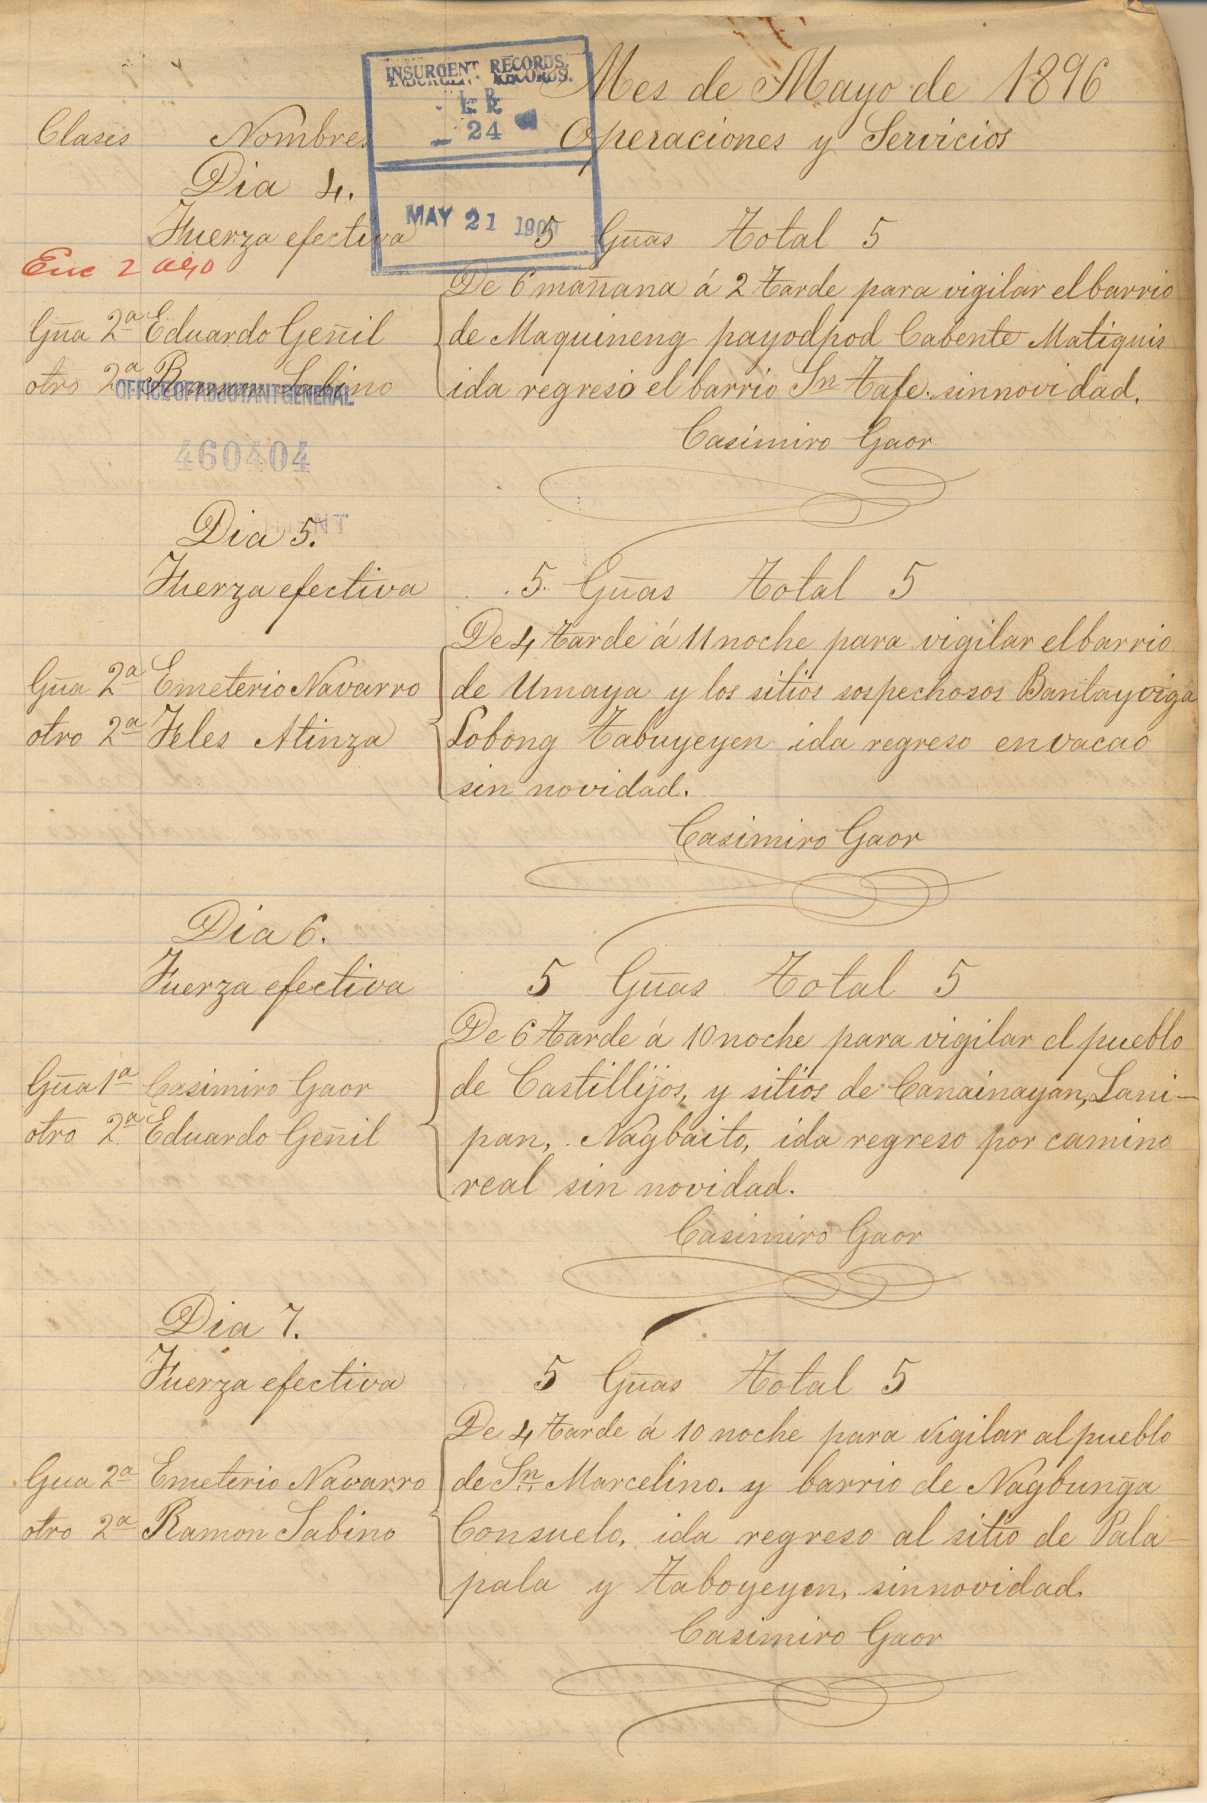 INSURGENT RECORDS.
L. R.
24
MAY 21 1900
Mes de Mayo de 1896
Clases Nombres Operaciones y Servicios
Dia 4.
Fuerza efectiva 5 Gũas Total 5
Enc 2
De 6 mañana á 2 tarde para vigilar el barrio
Gũa 2ª Eduardo Geñil de Maquineng payodpod Cabente Matiquis
otro 2ª Ramon Sabino ida regreso el barrio Sn Tafe. sinnovidad.
OFFICE OF ADJUTANT GENERAL
Casimiro Gaor
460404
Dia 5.
Fuerza efectiva 5. Gũas Total 5
De 4 tarde á 11 noche para vigilar el barrio
Gũa 2ª Emeterio Navarro de Umaya y los sitios sospechosos Banlayviga
otro 2ª Feles Atinza Lobong Tabuyeyen ida regreso envacao
sin novidad.
Casimiro Gaor
Dia 6.
Fuerza efectiva 5 Gũas Total 5
De 6 tarde á 10 noche para vigilar el pueblo
Gũa 1ª Casimiro Gaor de Castillijos, y sitios de Canainayan, Lani-
otro 2ª Eduardo Geñil pan, Nagbaito, ida regreso por camino
real sin novidad.
Casimiro Gaor
Dia 7.
Fuerza efectiva 5 Gũas Total 5
De 4 tarde á 10 noche para vigilar al pueblo
Gua 2ª Emeterio Navarro de Sn Marcelino. y barrio de Nagbunga
otro 2ª Ramon Sabino Consuelo, ida regreso al sitio de Pala-
pala y Taboyeyen, sinnovidad.
Casimiro Gaor